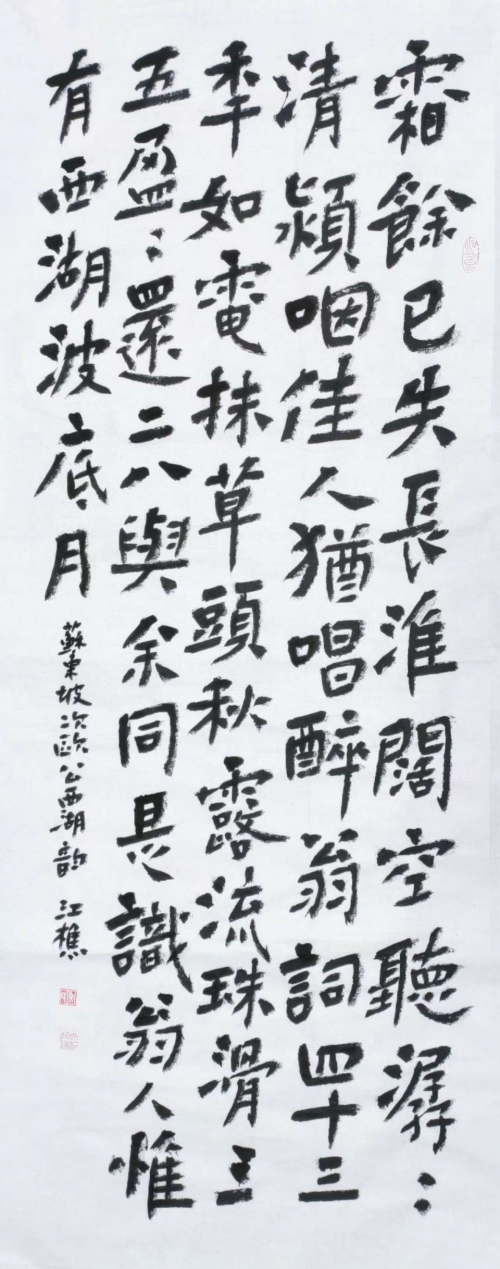 霜餘已失長淮闊空聽潺：
清潁咽佳人猶唱醉翁詞四十三
秊如電抹草頭秋露流珠滑三
五盈：還二八與余同是識翁人惟
有西湖波底月
蘇東坡次歐公西湖韵 江樵